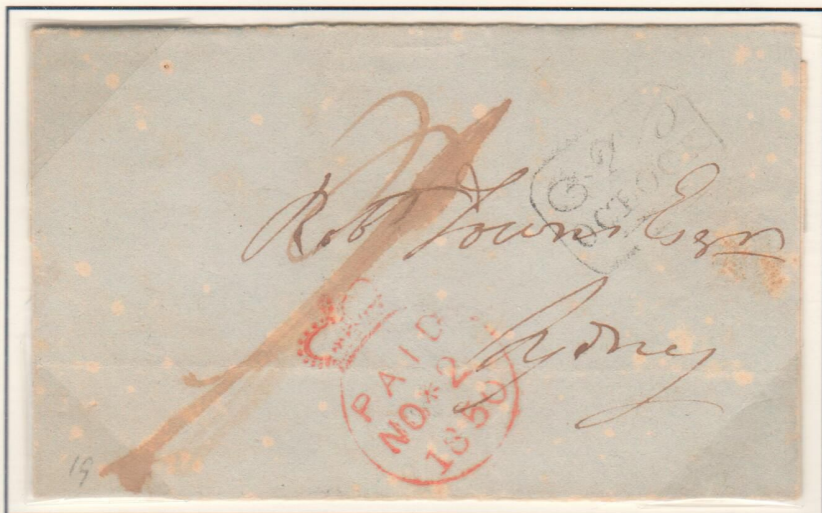 Robt Towns Esqr
Sydney
PAID
NO * 2
1850
19